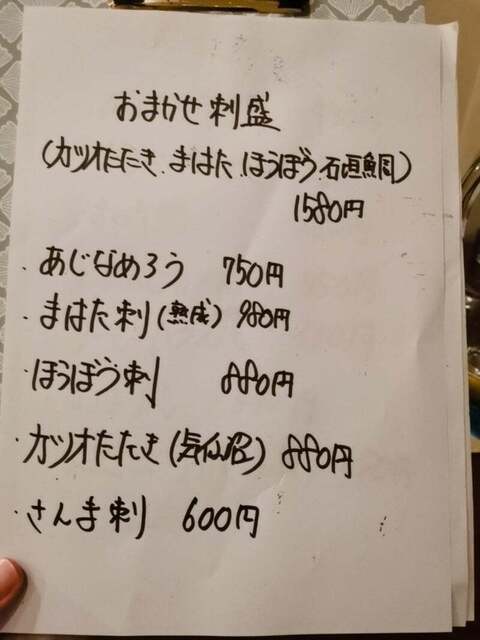 おまかせ刺盛
(カツオたたき、まはた、ほうぼう、石垣鯛)
1580円
・あじなめろう 750円
・まはた刺(熟成) 980円
・ほうぼう刺 880円
・カツオたたき(気仙沼) 880円
・さんま刺 600円